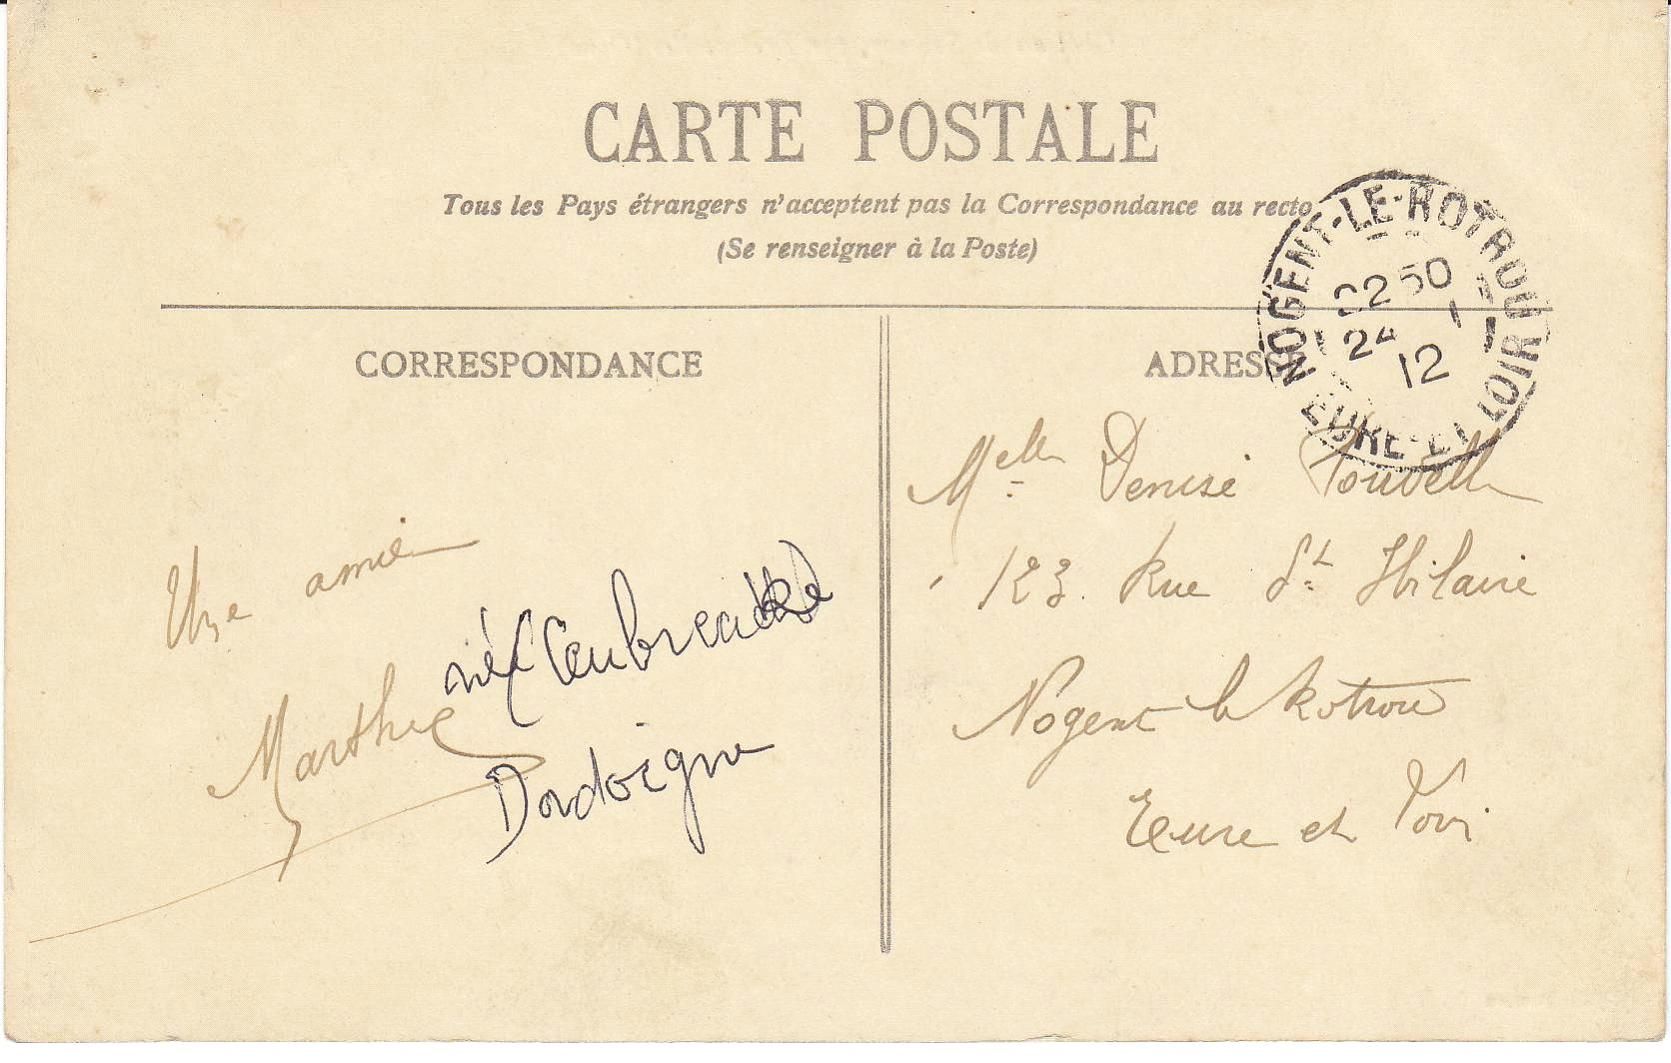 CARTE POSTALE
Tous les Pays étrangers n'acceptent pas la Correspondance au recto
(Se renseigner à la Poste)
NOGENT-LE-ROTROU
EURE-ET-LOIR
22 50
24 - 1
12
CORRESPONDANCE
ADRESSE
Une amie
Marthe
née
Dordoigne
Melle Denise
123. Rue St Hilaire
Nogent le Rotrou
Eure et Loir